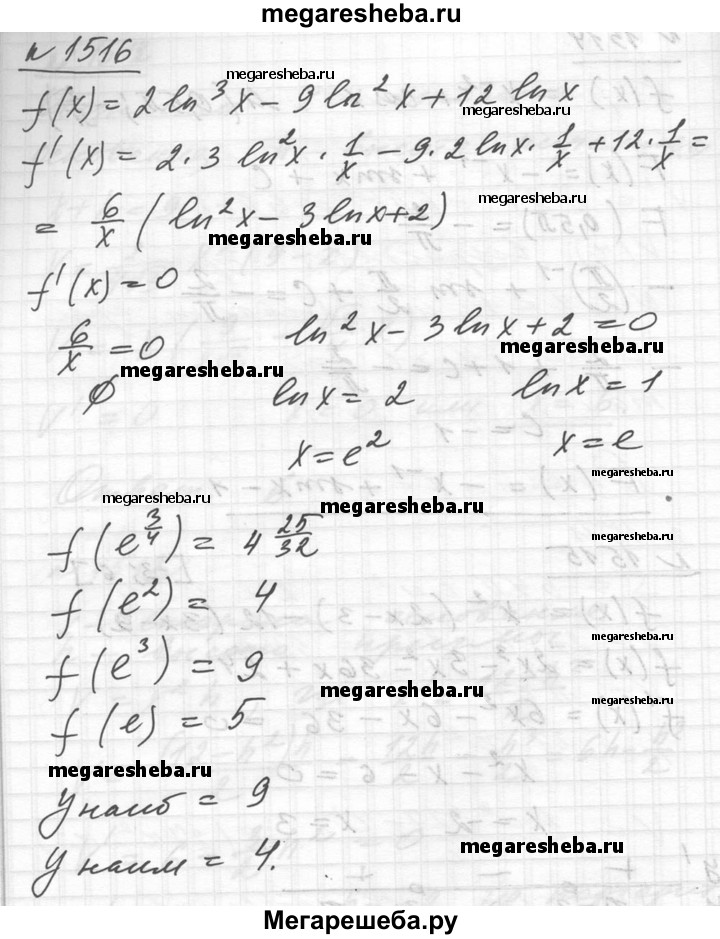 megaresheba.ru
n 1516
megaresheba.ru
f(x) = 2 ln³x - 9 ln²x + 12 ln x
megaresheba.ru
f'(x) = 2·3 ln²x · 1/x - 9·2 lnx · 1/x + 12 · 1/x =
megaresheba.ru
= 6/x (ln²x - 3 lnx + 2)
megaresheba.ru
f'(x) = 0
6/x = 0 ln²x - 3 lnx + 2 = 0
megaresheba.ru
megaresheba.ru
∅ ln x = 2 ln x = 1
x = e² x = e
megaresheba.ru
megaresheba.ru
megaresheba.ru
f(e^(3/4)) = 4 25/32
megaresheba.ru
f(e²) = 4
megaresheba.ru
f(e³) = 9
megaresheba.ru
megaresheba.ru
f(e) = 5
megaresheba.ru
У наиб = 9
У наим = 4.
megaresheba.ru
Мегарешеба.ру